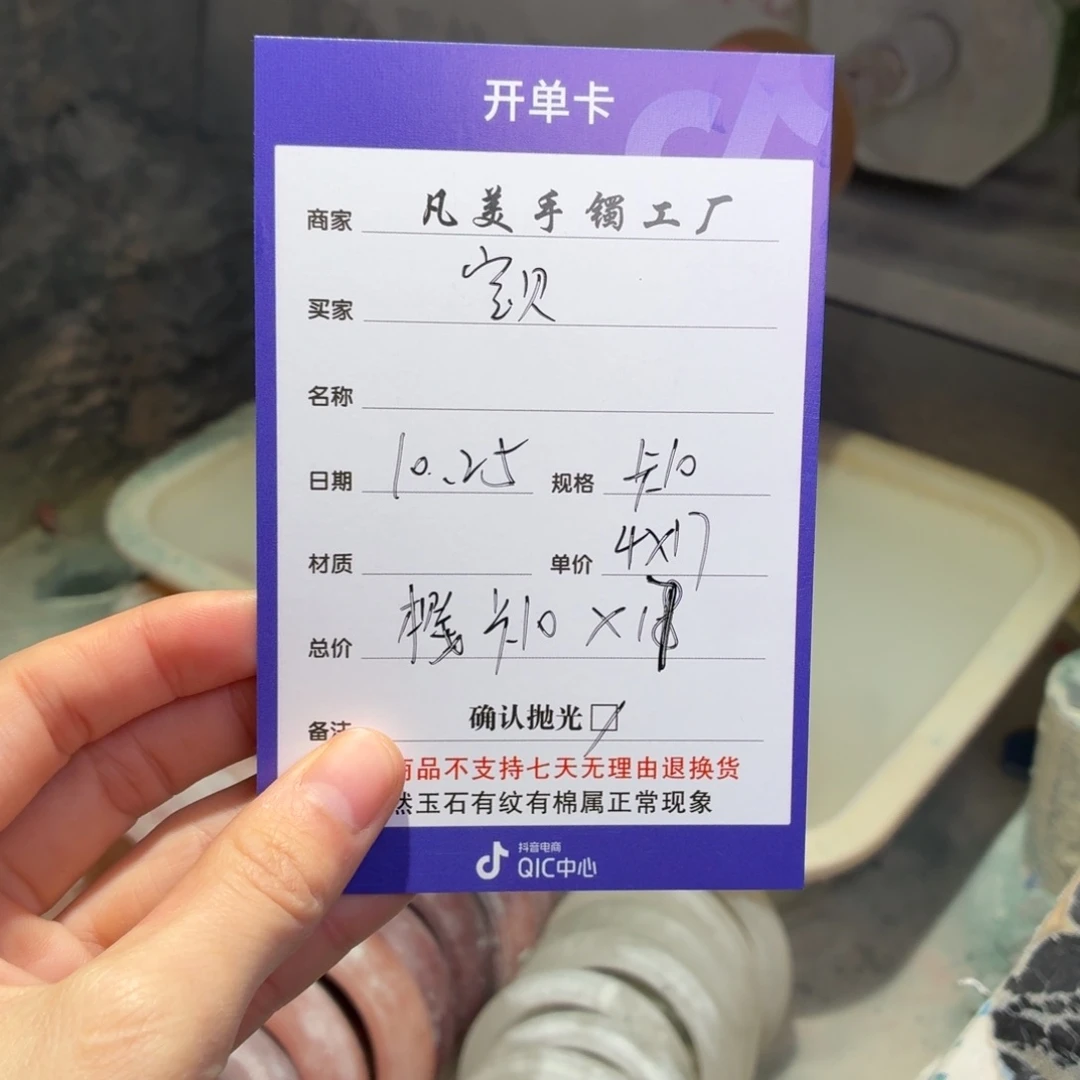 开单卡
商家 凡美手镯工厂
买家 宝贝
名称
日期 10.25 规格 卡10
材质 单价 4×17
总价 卡10 ×1
备注 确认抛光
商品不支持七天无理由退换货
然玉石有纹有棉属正常现象
抖音电商
QIC中心